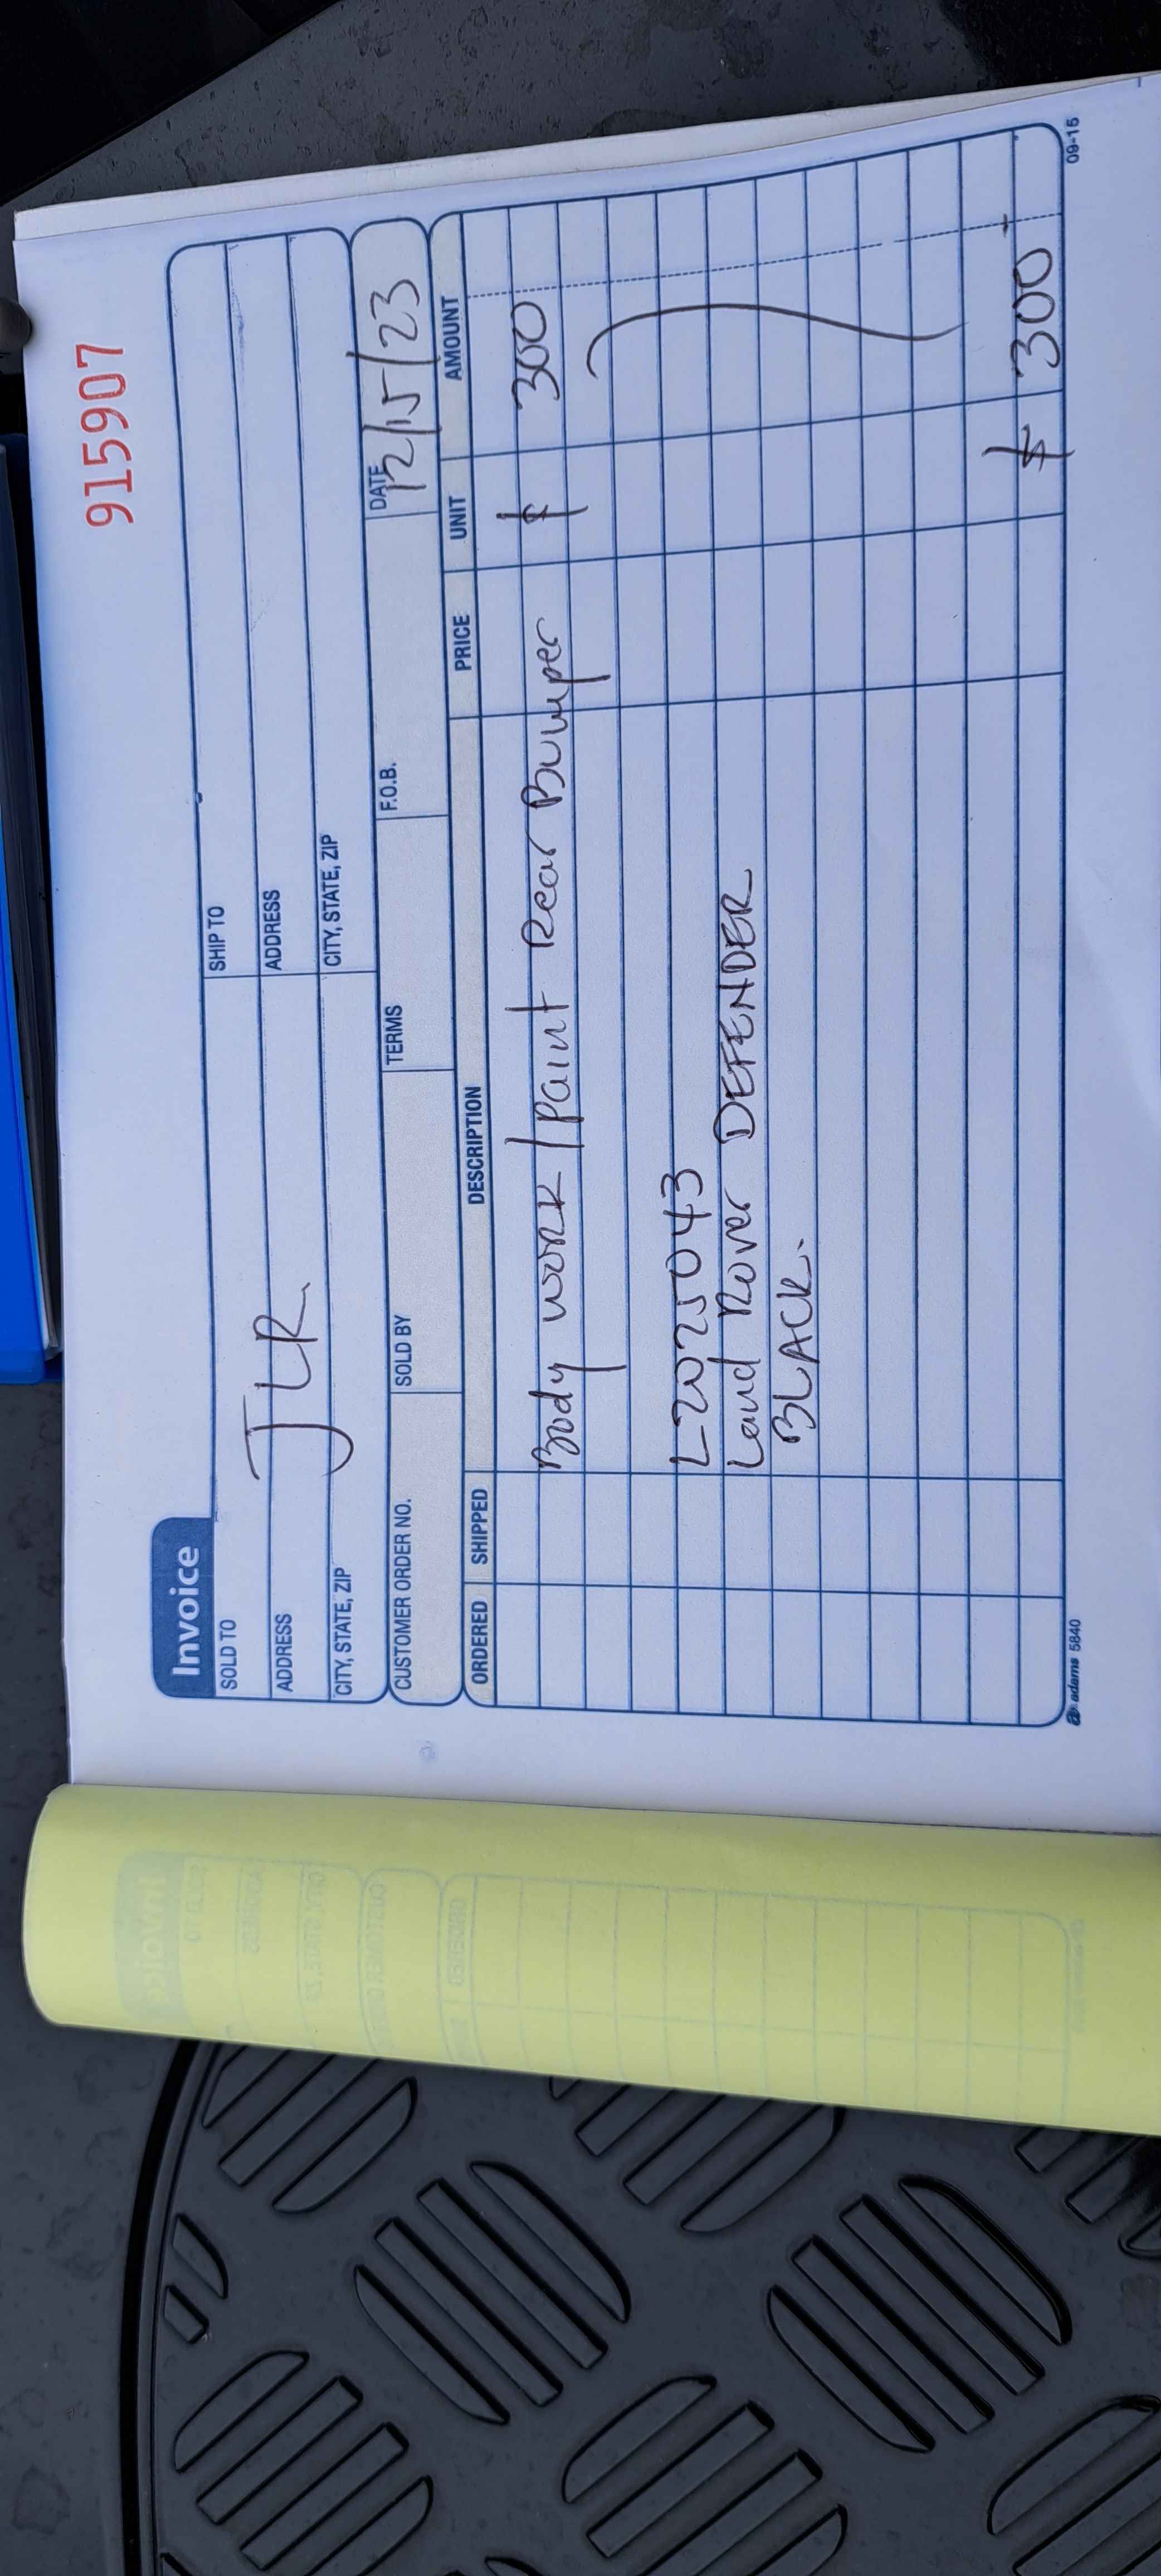 915907
Invoice
SOLD TO JLR. SHIP TO
ADDRESS ADDRESS
CITY, STATE, ZIP CITY, STATE, ZIP
CUSTOMER ORDER NO. SOLD BY TERMS F.O.B. DATE 12/15/23
ORDERED SHIPPED DESCRIPTION PRICE UNIT AMOUNT
Body work / Paint Rear Bumper $ 300
L-2025043
Land Rover DEFENDER
BLACK.
$ 300 -
adams 5840 09-15